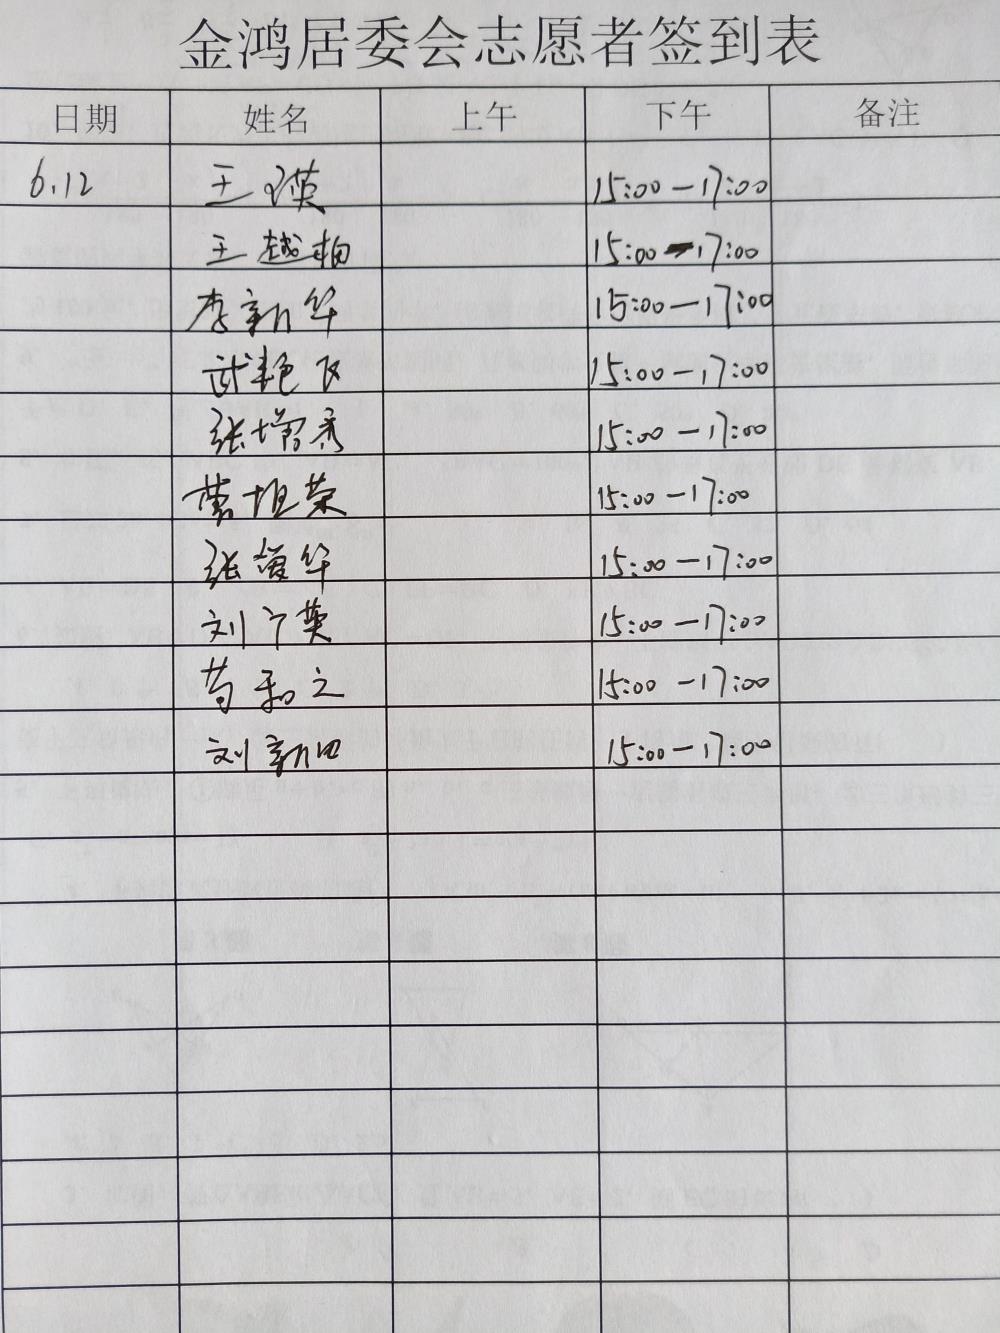 金鸿居委会志愿者签到表
日期 姓名 上午 下午 备注
6.12 王瑛 15:00—17:00
王越相 15:00—17:00
李新华 15:00—17:00
武艳 15:00—17:00
张增秀 15:00—17:00
荣 15:00—17:00
张增华 15:00—17:00
刘广英 15:00—17:00
15:00—17:00
刘新 15:00—17:00